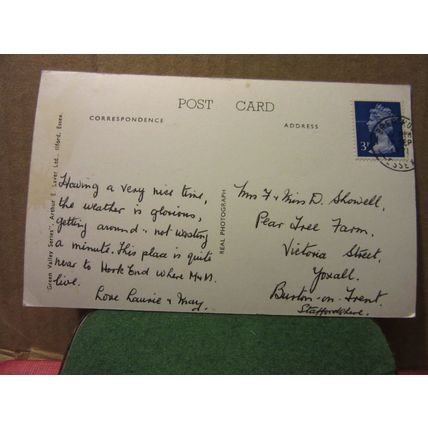 POST CARD
CORRESPONDENCE
ADDRESS
3P
Having a very nice time,
the weather is glorious,
getting around & not wasting
a minute. This place is quite
near to Hook End where M & N.
live.
Love Laurie & May.
"Green Valley Series", Arthur E. Laver Ltd., Ilford, Essex.
REAL PHOTOGRAPH
Mrs F & Miss D. Showell,
Pear Tree Farm,
Victoria Street,
Yoxall.
Burton-on-Trent.
Staffordshire.